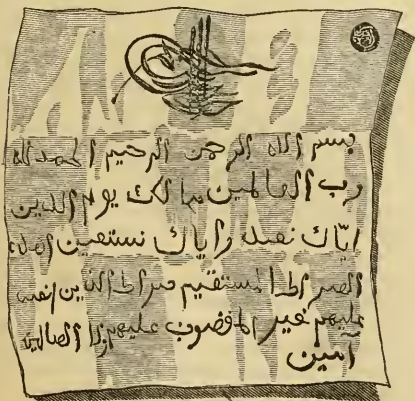 بسم الاه الرحمن الرحيم الحمد لله
رب العالمين مالك يوم الدين
اياك نعبد واياك نستعين اهدنا
الصراط المستقيم صراط الذين انعمت
عليهم غير المغضوب عليهم ولا الضالين
آمين